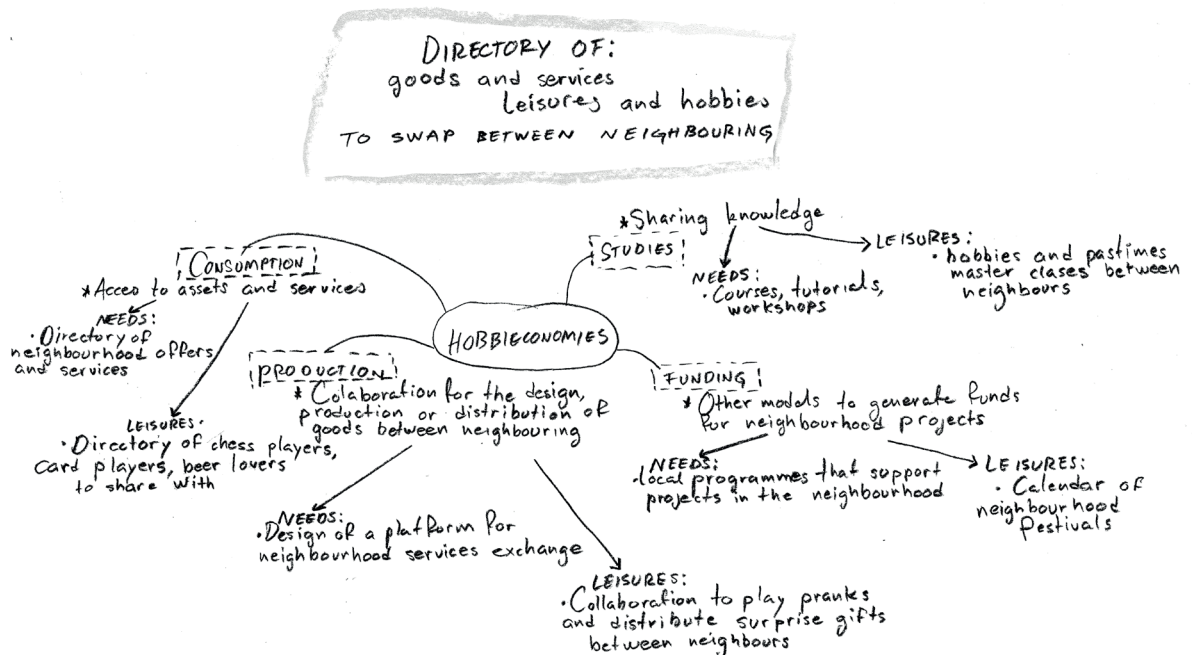 DIRECTORY OF:
goods and services
Leisures and hobbies
TO SWAP BETWEEN NEIGHBOURING
CONSUMPTION
*Acces to assets and services
NEEDS:
·Directory of
neighbourhood offers
and services
LEISURES·
·Directory of chess players,
card players, beer lovers
to share with
HOBBIECONOMIES
STUDIES
*Sharing knowledge
NEEDS:
·Courses, tutorials,
workshops
LEISURES:
·hobbies and pastimes
master clases between
neighbours
PRODUCTION
*Colaboration for the design,
production or distribution of
goods between neighbouring
NEEDS:
·Design of a platform for
neighbourhood services exchange
LEISURES:
·Collaboration to play pranks
and distribute surprise gifts
between neighbours
FUNDING
*Other models to generate funds
for neighbourhood projects
NEEDS:
·local programmes that support
projects in the neighbourhood
LEISURES:
·Calendar of
neighbourhood
festivals